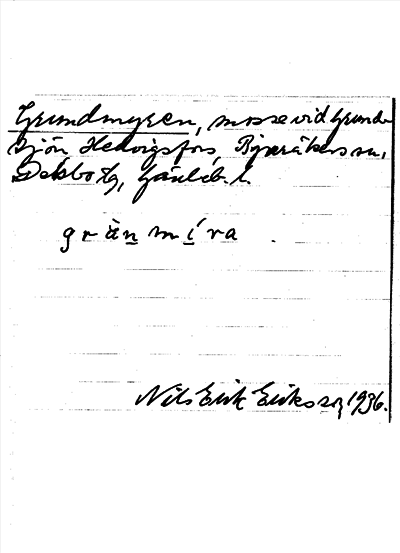 Grundmyren, mosse vid Grund-
sjön Hedvigsfors, Bjuråkers sn,
Delsbo tg, Gävleb. l.
grànmíra.
Nils Erik Eriksson 1936.